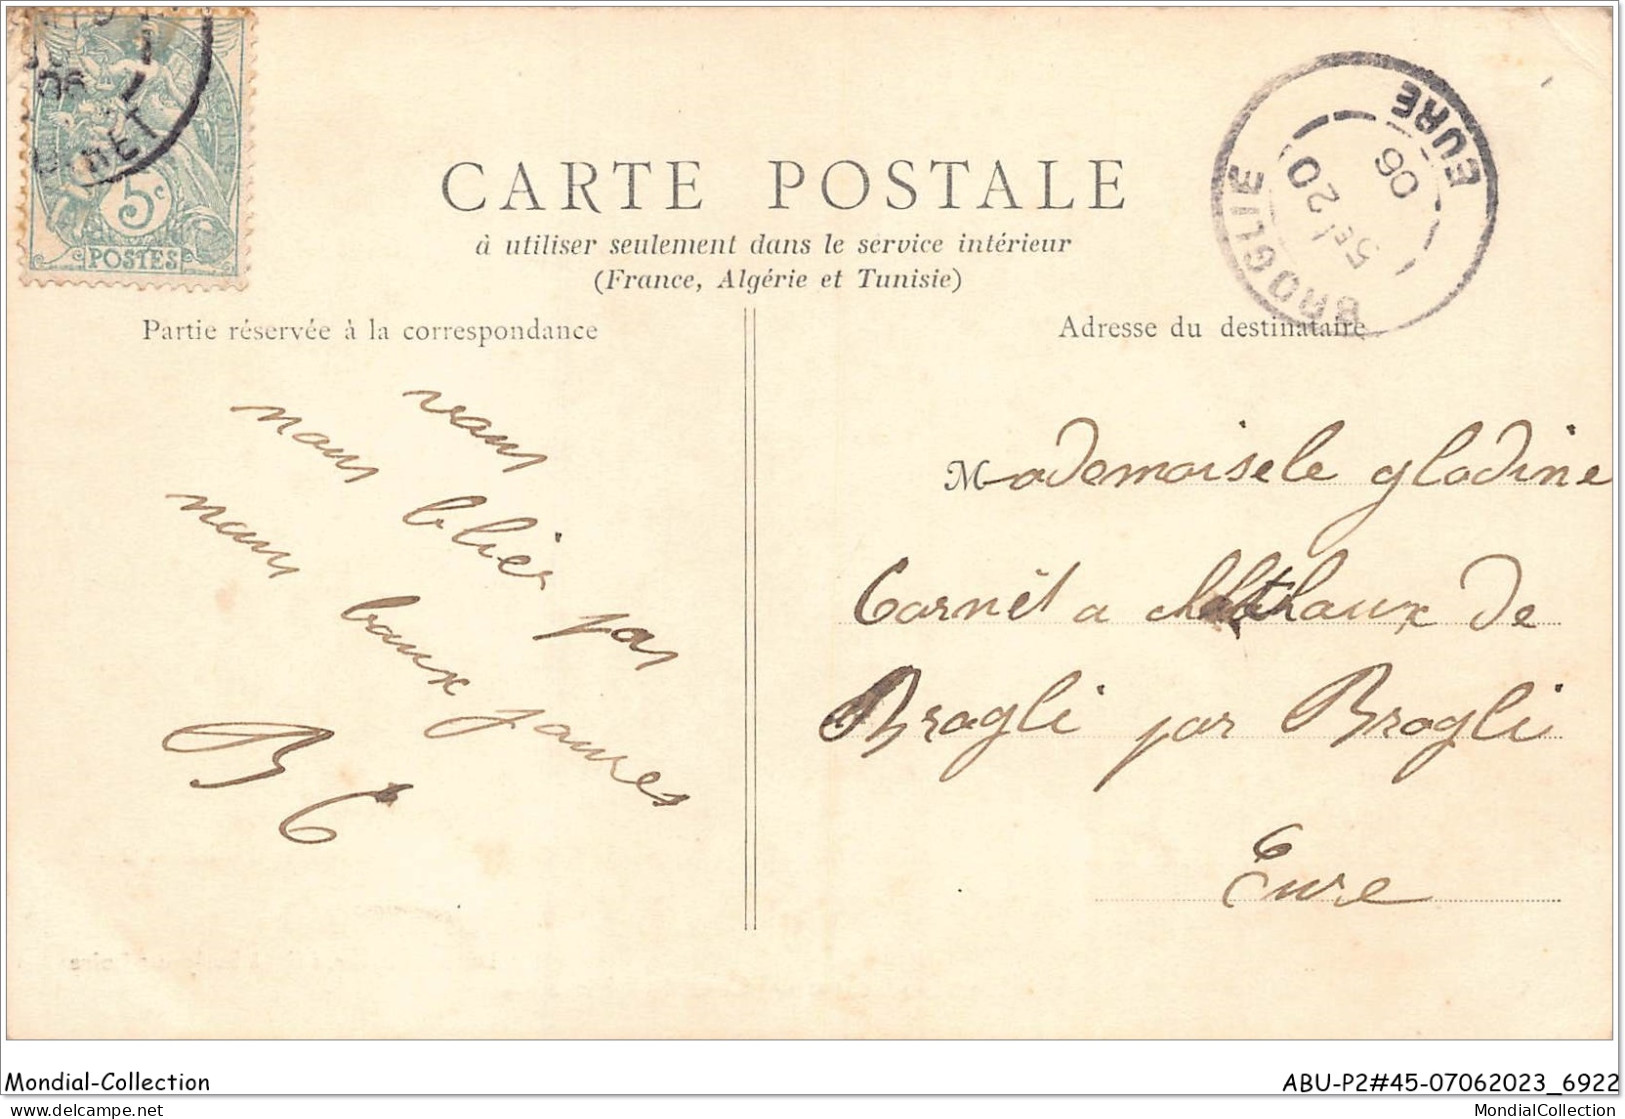 06
5c
POSTES
CARTE POSTALE
à utiliser seulement dans le service intérieur
(France, Algérie et Tunisie)
BROGLIE
20
06
EURE
Partie réservée à la correspondance
Adresse du destinataire
vous
nous bliér pas
nous baux joures
B C
Mademoisele glodine
Cornèt a chathaux de
Brogli par Brogli
Eure
Mondial-Collection
ABU-P2#45-07062023_6922
www.delcampe.net
MondialCollection